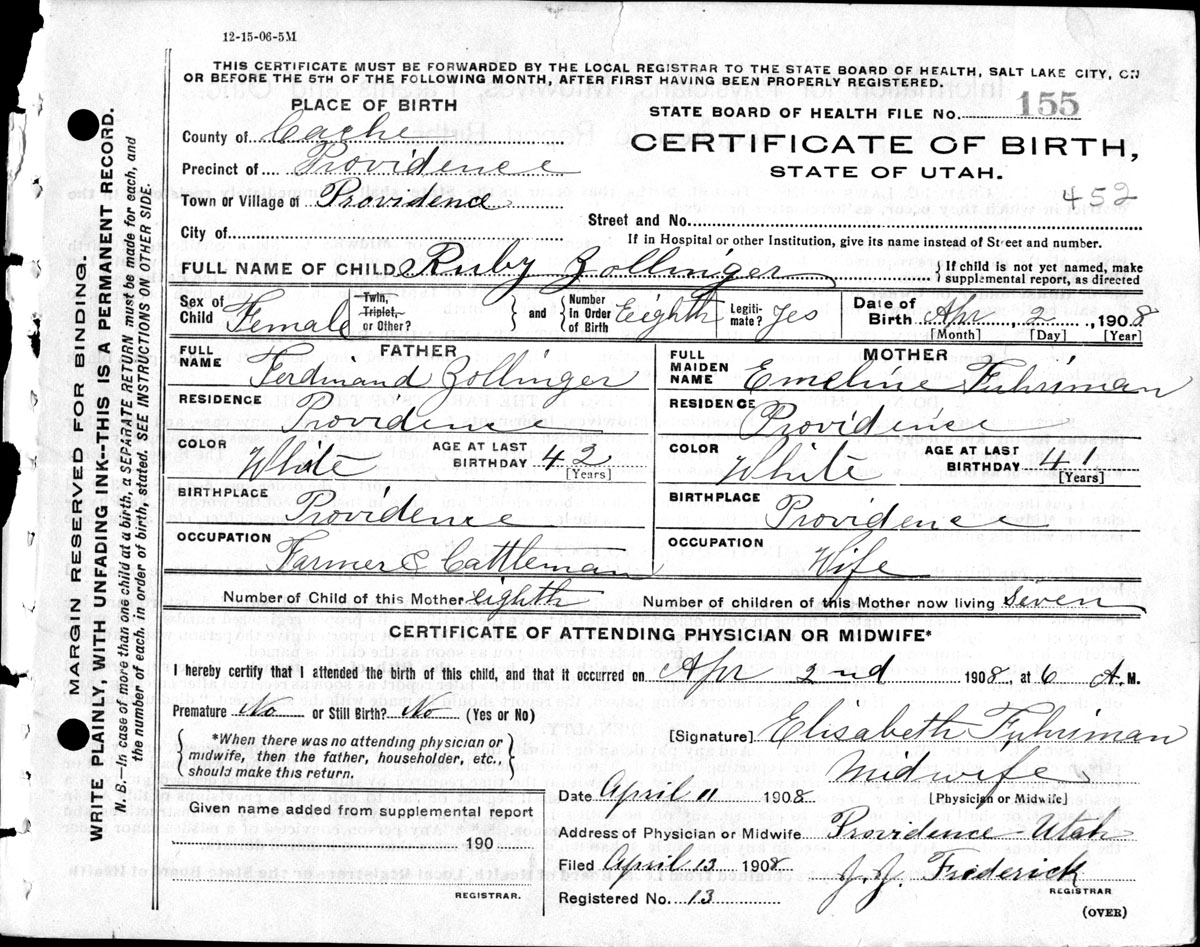 12-15-06-5M
THIS CERTIFICATE MUST BE FORWARDED BY THE LOCAL REGISTRAR TO THE STATE BOARD OF HEALTH, SALT LAKE CITY, ON
OR BEFORE THE 5TH OF THE FOLLOWING MONTH, AFTER FIRST HAVING BEEN PROPERLY REGISTERED.
PLACE OF BIRTH
STATE BOARD OF HEALTH FILE No. 155
County of Cache
CERTIFICATE OF BIRTH,
Precinct of Providence
STATE OF UTAH.
452
Town or Village of Providence
Street and No.
City of
If in Hospital or other Institution, give its name instead of Street and number.
FULL NAME OF CHILD Ruby Zollinger { If child is not yet named, make
supplemental report, as directed
Sex of Child Female { Twin, Triplet, or Other? } and { Number in Order of Birth Eighth Legitimate? Yes Date of Birth Apr 2 1908
[Month] [Day] [Year]
FATHER
MOTHER
FULL NAME Ferdinand Zollinger
FULL MAIDEN NAME Emeline Fuhriman
RESIDENCE Providence
RESIDENCE Providence
COLOR White AGE AT LAST BIRTHDAY 42 [Years]
COLOR White AGE AT LAST BIRTHDAY 41 [Years]
BIRTHPLACE Providence
BIRTHPLACE Providence
OCCUPATION Farmer & Cattleman
OCCUPATION Wife
Number of Child of this Mother eighth Number of children of this Mother now living seven
CERTIFICATE OF ATTENDING PHYSICIAN OR MIDWIFE*
I hereby certify that I attended the birth of this child, and that it occurred on Apr 2nd 1908, at 6 A.M.
Premature No or Still Birth? No (Yes or No)
[Signature] Elisabeth Fuhriman
{ *When there was no attending physician or
midwife, then the father, householder, etc.,
should make this return. }
Midwife
[Physician or Midwife]
Date April 11 1908
Given name added from supplemental report
190
Address of Physician or Midwife Providence-Utah
Filed April 13 1908 J. J. Frederick
REGISTRAR
REGISTRAR.
Registered No. 13
(OVER)
MARGIN RESERVED FOR BINDING.
WRITE PLAINLY, WITH UNFADING INK--THIS IS A PERMANENT RECORD.
N. B.—In case of more than one child at a birth, a SEPARATE RETURN must be made for each, and
the number of each, in order of birth, stated. SEE INSTRUCTIONS ON OTHER SIDE.